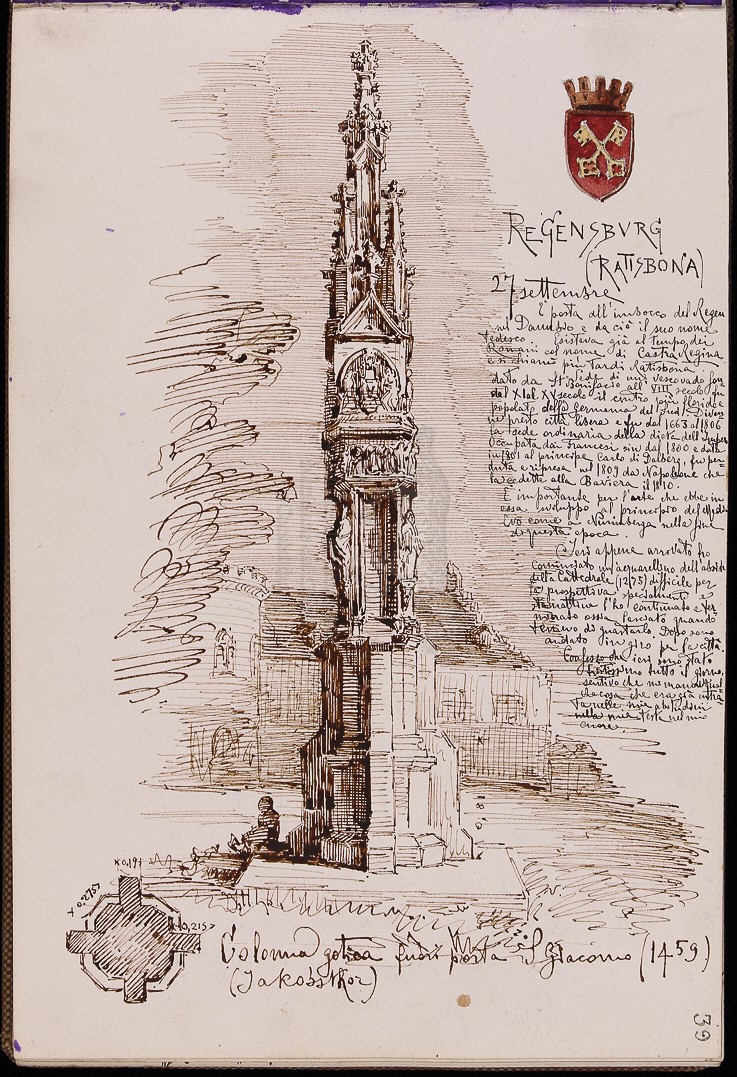 REGENSBVRG
(RATISBONA)
27 settembre
È posta all'imbocco del Regen
sul Danubio e da ciò il suo nome
tedesco. Esisteva già al tempo dei
Romani col nome di Castra Regina
e si chiamò più tardi Ratisbona
sede di un vescovado fon
dato da St Bonifacio all' VIII secolo fu
dal XI al XV secolo il centro più florido e
popolato della germania del Sud. Diven
ne presto città libera e fu dal 1663 al 1806
la sede ordinaria della dieta dell'Impero
Occupata dai francesi sin dal 1800 e data
in al principe Carlo di Dalberg, fu per
duta e ripresa nel 1809 da Napoleone che
la cedette alla Baviera il 1810.
È importante per l'arte che ebbe in
essa sviluppo al principio del Medio
Evo come a Nürimberga nella fine
di questa epoca.
Ieri appena arrivato ho
cominciato un aquarellino dell'abside
della Cattedrale (1275) difficile per
la prospettiva specialmente e
stamattina l'ho continuato e ter
minato ossia lasciato quando
temevo di guastarlo. Dopo sono
andato in giro per la città.
Confesso che ieri sono stato
tutto il giorno,
sentivo che mi mancava qual
che cosa che era già entra
ta nelle mie abitudini
nella mia testa nel mio
cuore
1,810
x 0,19
x 0,275
x 0,215
Colonna gotica fuori porta S. Giacomo (1459)
(Jakobsthor)
39